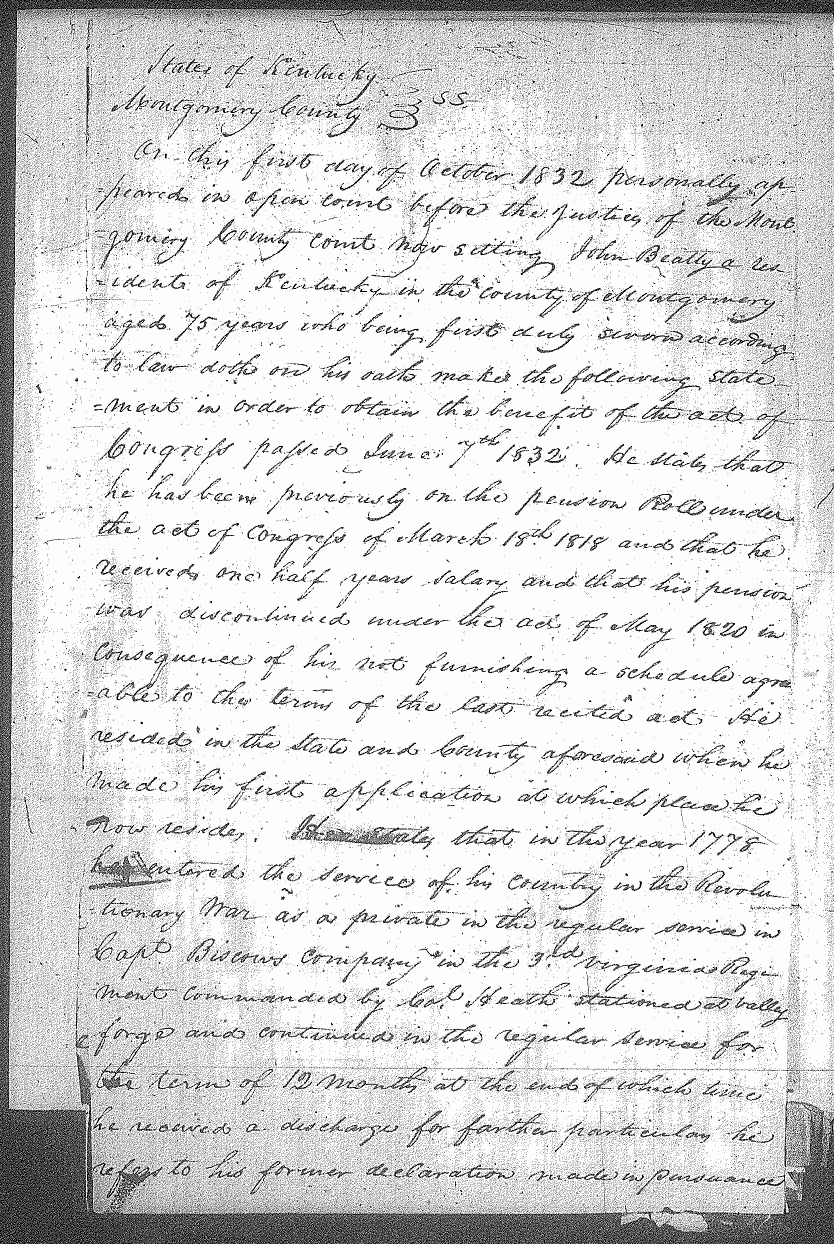 States of Kentucky
Montgomery County } SS
On this first day of October 1832 personally ap
=peared in open court before the Justices of the Mont
=gomery County court now sitting John Beatty a res
=idents of Kentucky in the county of Montgomery
aged 75 years who being first duly sworn according
to law doth on his oath make the following state
=ment in order to obtain the benefit of the act of
Congress passed June 7th 1832. He states that
he has been previously on the pension Roll under
the act of Congress of March 18th 1818 and that he
received one half years salary and that his pension
was discontinued under the act of May 1820 in
consequence of his not furnishing a schedule agre
=able to the terms of the last recited act He
resided in the State and County aforesaid when he
made his first application at which place he
now resides. He states that in the year 1778
he entered the service of his country in the Revolu
=tionary War as a private in the regular service in
Capt Biscows company in the 3rd virginia Regi
ment commanded by Col Heath stationed at vally
forge and continued in the regular service for
the term of 12 months at the end of which time
he received a discharge for farther particulars he
refers to his former declaration made in pursuance